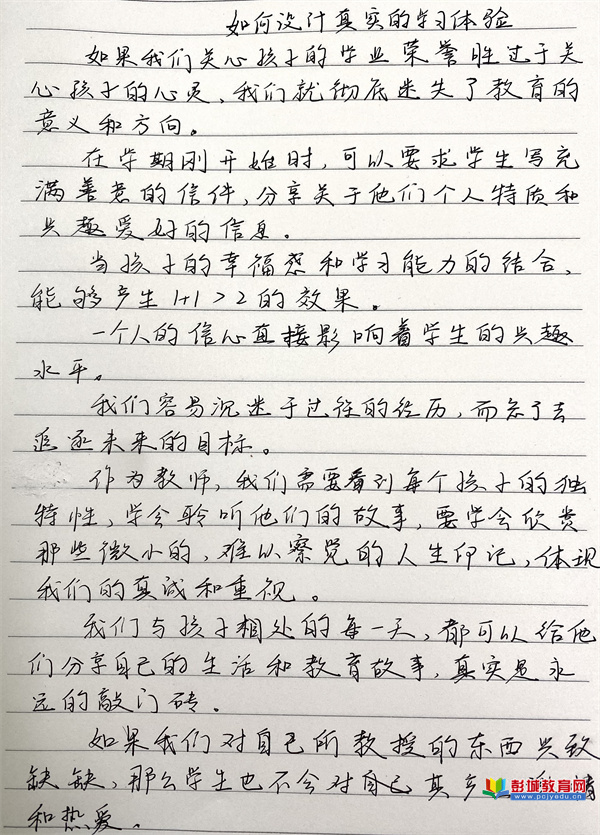 如何设计真实的学习体验
如果我们关心孩子的学业荣誉胜过于关
心孩子的心灵，我们就彻底迷失了教育的
意义和方向。
在学期刚开始时，可以要求学生写充
满善意的信件，分享关于他们个人特质和
兴趣爱好的信息。
当孩子的幸福感和学习能力的结合，
能够产生1+1>2的效果。
一个人的信心直接影响着学生的兴趣
水平。
我们容易沉迷于过往的经历，而忘了去
追逐未来的目标。
作为教师，我们需要看到每个孩子的独
特性，学会聆听他们的故事，要学会欣赏
那些微小的，难以察觉的人生印记，体现
我们的真诚和重视。
我们与孩子相处的每一天，都可以给他
们分享自己的生活和教育故事，真实是永
远的敲门砖。
如果我们对自己所教授的东西兴致
缺缺，那么学生也不会对自己其
和热爱。
彭城教育网
www.pcjyedu.cn